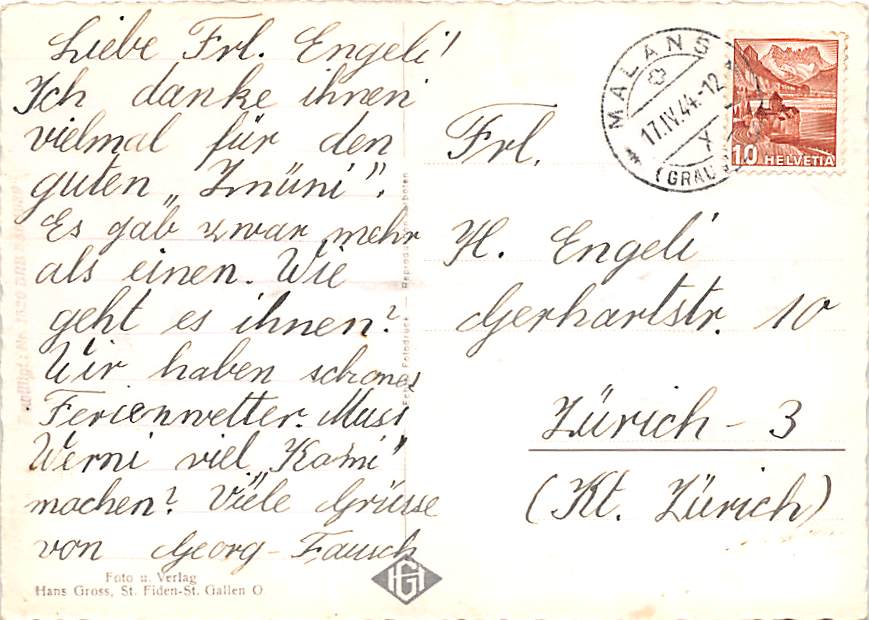 Liebe Frl. Engeli!
Ich danke ihnen
vielmal für den
guten „Znüni".
Es gab zwar mehr
als einen. Wie
geht es ihnen?
Wir haben schönes
Ferienwetter. Muss
Werni viel „Kami"
machen? Viele Grüsse
von Georg Fausch
Foto u. Verlag
Hans Gross, St. Fiden-St. Gallen O
Echte Fotodruck — Reproduktion verboten
HG
MALANS
17.IV.44.-12
(GRAU
10 HELVETIA
Frl.
H. Engeli
Gerhartstr. 10
Zürich - 3
(Kt. Zürich)